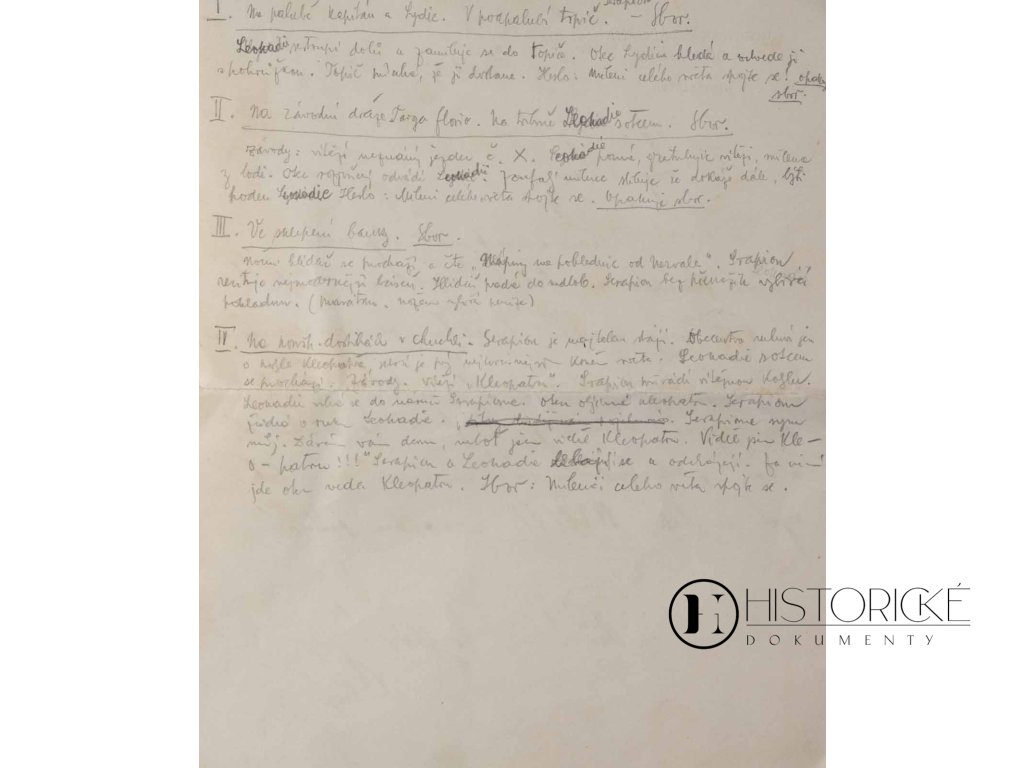 Serapion
I. Na palubě kapitán a Lydie. V podpalubí topič. – Sbor.
Leokadie vstoupí dolů a zamiluje se do topiče. Otec Lydiin hledá a odvede ji
s pohrůžkou. Topič přísahá, že jí dostane. Heslo: Milenci celého světa spojte se! opakuje
sbor.
II. Na závodní dráze Targa florio. Na tribuně Leokadie s otcem. Sbor.
závody: vítězí neznámý jezdec č. X. Leokadie pozná, gratulujíc vítězi, milence
z lodi. Otec rozzuřený odvádí Leokadii. Zoufalý milenec slibuje že dokáže dále, být
hoden Leokadie Heslo: Milenci celého světa spojte se. Opakuje sbor.
III. Ve sklepení banky. Sbor.
noční hlídač se prochází a čte „ na pohlednice od Nezvala". Serapion
recituje nejmodernější báseň. Hlídač padá do mdlob. Serapion bez překážek vybírá
pokladnu. (
IV. Na koňských dostihách v Chuchli. Serapion je majitelem stáji. Obecenstvo mluví jen
o kobyle Kleopatře, která je prý nejkrásnějším koněm světa. Leokadie s otcem
se prochází. Závody. vítězí „Kleopatra". Serapion přivádí vítěznou kobylu.
Leokadie vrhá se do náručí Serapiona. Otec Serapion
žádá o ruku Leokadie. Serapione synu
můj. Dávám vám dceru, neboť jsem viděl Kleopatru. Viděl jsem Kle-
o-patru!!!" Serapion a Leokadie se a odcházejí. Za nimi
jde otec veda Kleopatru. Sbor: Milenci celého světa spojte se.
HISTORICKÉ
DOKUMENTY